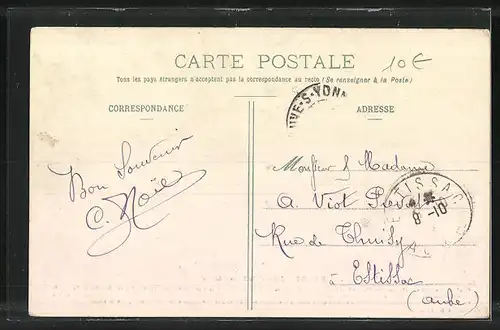 CARTE POSTALE
10€
Tous les pays étrangers n'acceptent pas la correspondance au recto (Se renseigner à la Poste)
CORRESPONDANCE
ADRESSE
UVE-S-YONN
Bon Souvenir
C. Noël
Monsieur & Madame
A. Viot Prevost
Rue de Thuisy
à Estissac
(Aube)
ESTISSAC
8-10
AUBE